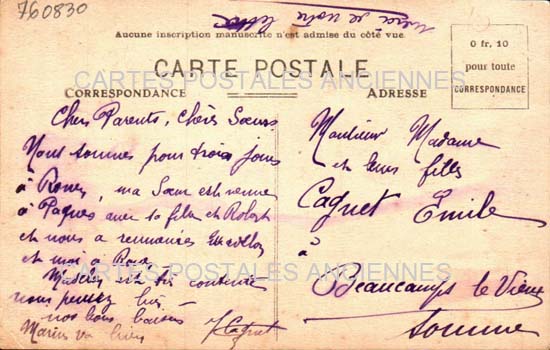 760830
merci de votre lettre
Aucune inscription manuscrite n'est admise du côté vue.
CARTE POSTALE
CARTES POSTALES ANCIENNES
CORRESPONDANCE
ADRESSE
0 fr, 10
pour toute
CORRESPONDANCE
Chers Parents, Chères Sœurs
Nous sommes pour trois jours
à Rouen, ma Sœur est venue
à Paques avec sa fille et Robert
et nous a remmenées
et moi à Rouen
est très contente
vous pensez bien
nos bons baisers
va bien
J Caquet
Monsieur Madame
et leurs filles
Caquet Emile
à
Beaucamps le Vieux
Somme
CARTES POSTALES ANCIENNES
CARTES POSTALES ANCIENNES